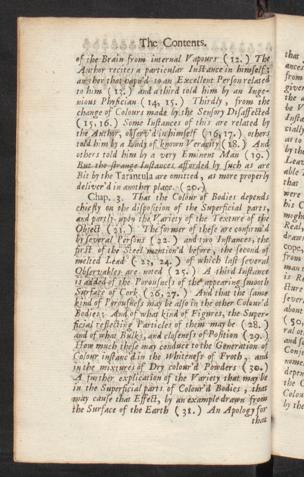 The Contents.
of the Brain from internal Vapours (12.) The
Author recites a particular Instance in himself;
another that hapn'd to an Excellent Person related
to him (13.) and a third told him by an Inge-
nious Physician (14, 15.) Thirdly, from the
change of Colours made by the Sensory Disaffected
(15, 16.) Some Instances of this are related by
the Author, observ'd in himself (16, 17.) others
told him by a Lady of known Veracity (18.) And
others told him by a very Eminent Man (19.)
But the strange Instances afforded by such as are
Bit by the Tarantula are omitted, as more properly
deliver'd in another place. (20.)
Chap. 3. That the Colour of Bodies depends
chiefly on the disposition of the Superficial parts,
and partly upon the Variety of the Texture of the
Object (21.) The former of these are confirm'd
by several Persons (22.) and two Instances, the
first of the Steel mention'd before, the second of
melted Lead (22, 24.) of which last several
Observables are noted (25.) A third Instance
is added of the Porousness of the appearing smooth
Surface of Cork (26, 27.) And that the same
kind of Porousness may be also in the other Colour'd
Bodies; And of what kind of Figures, the Super-
ficial reflecting Particles of them may be (28.)
and of what Bulks, and closeness of Position (29.)
How much these may conduce to the Generation of
Colour instanc'd in the Whiteness of Froth, and
in the mixtures of Dry colour'd Powders (30.)
A further explication of the Variety that may be
in the Superficial parts of Colour'd Bodies, that
may cause that Effect, by an example drawn from
the Surface of the Earth (31.) An Apology for
that